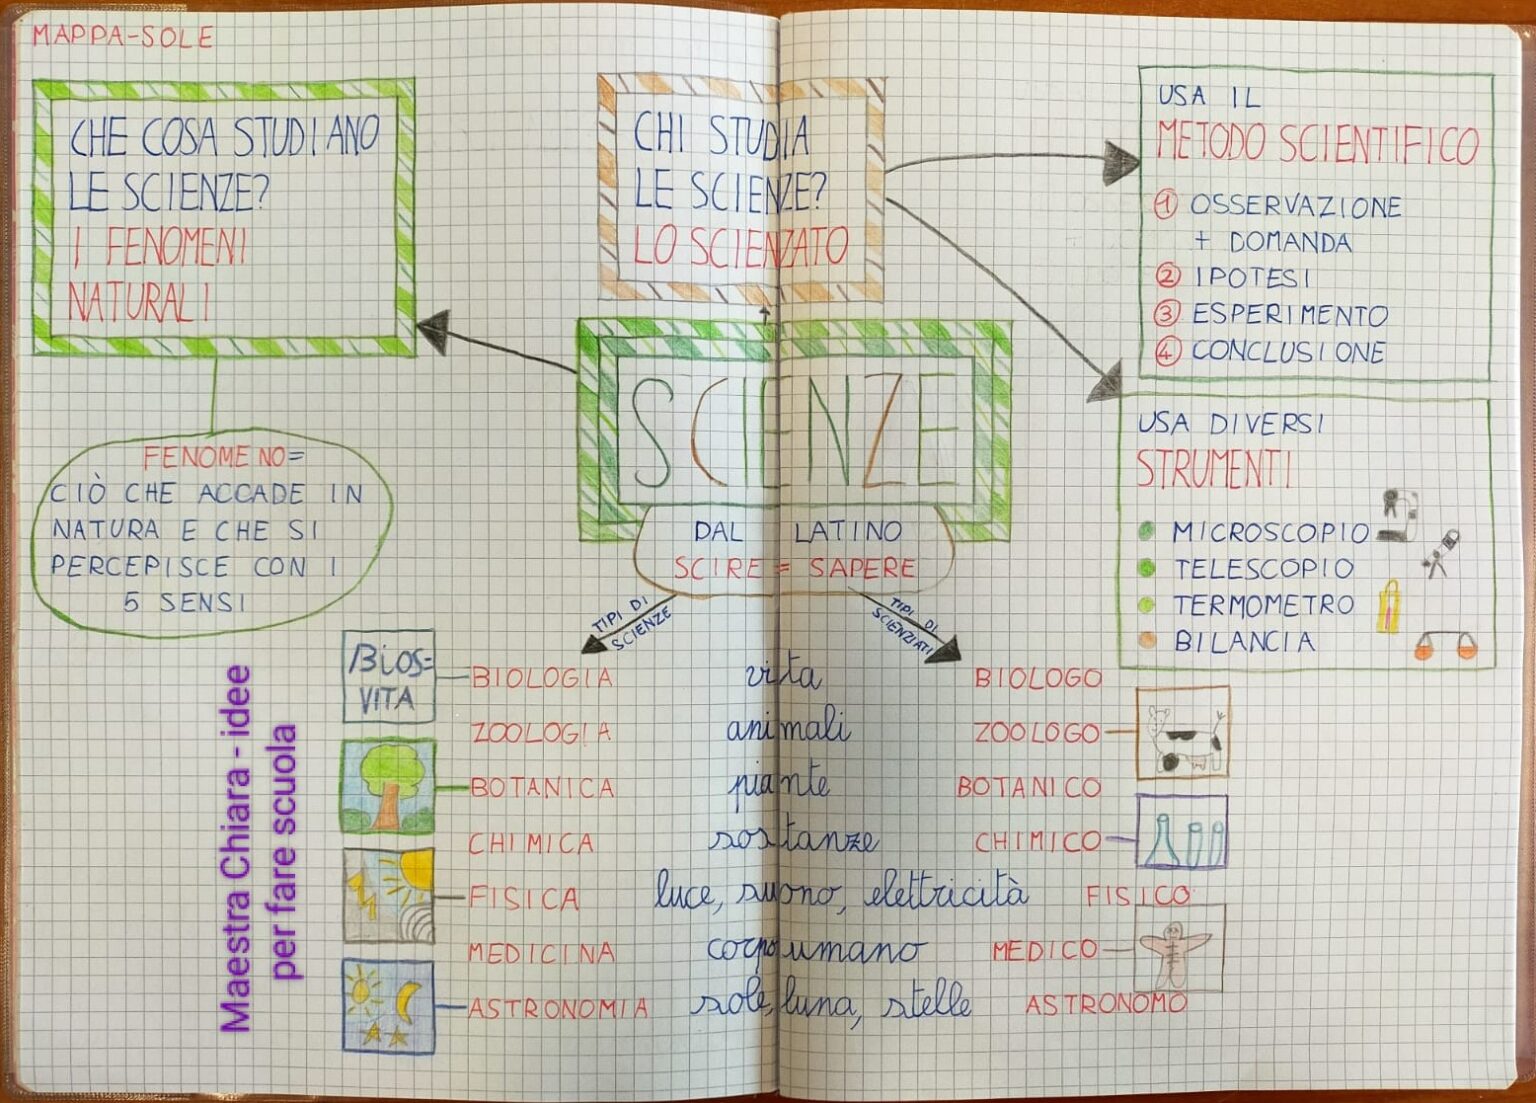 MAPPA-SOLE
CHE COSA STUDIANO
LE SCIENZE?
I FENOMENI
NATURALI
FENOMENO=
CIÒ CHE ACCADE IN
NATURA E CHE SI
PERCEPISCE CON I
5 SENSI
CHI STUDIA
LE SCIENZE?
LO SCIENZATO
SCIENZE
DAL LATINO
SCIRE = SAPERE
USA IL
METODO SCIENTIFICO
1 OSSERVAZIONE
+ DOMANDA
2 IPOTESI
3 ESPERIMENTO
4 CONCLUSIONE
USA DIVERSI
STRUMENTI
MICROSCOPIO
TELESCOPIO
TERMOMETRO
BILANCIA
TIPI DI
SCIENZE
TIPI DI
SCIENZIATI
BIOS=
VITA
BIOLOGIA vita BIOLOGO
ZOOLOGIA animali ZOOLOGO
BOTANICA piante BOTANICO
CHIMICA sostanze CHIMICO
FISICA luce, suono, elettricità FISICO
MEDICINA corpo umano MEDICO
ASTRONOMIA sole, luna, stelle ASTRONOMO
Maestra Chiara - idee
per fare scuola